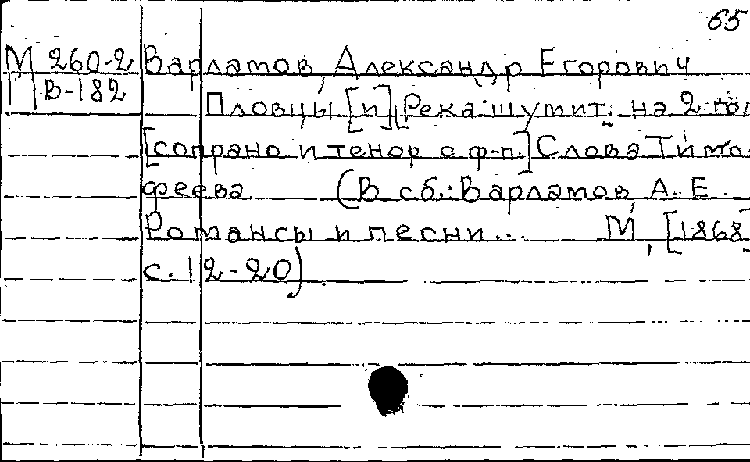 65
М 260-2 Варламов, Александр Егорович
П В-182 Пловцы [и] [Река шумит; на 2 гол
[сопрано и тенор с ф-п.] Слова Тимо
феева (В сб.: Варламов, А. Е.
Романсы и песни... М., [1868]
с. 12-20)